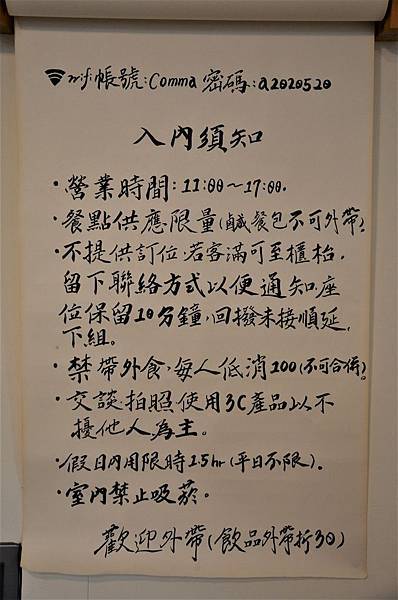 wifi帳號:Comma 密碼:a2020520
入內須知
·營業時間:11:00~17:00.
·餐點供應限量(鹹餐包不可外帶)
·不提供訂位,若客滿可至櫃枱,
留下聯絡方式以便通知,座
位保留10分鐘,回撥未接順延
下組。
·禁帶外食,每人低消100(不可合併)。
·交談.拍照.使用3C產品以不
擾他人為主。
·假日內用限時1.5hr(平日不限)。
·室內禁止吸菸。
歡迎外帶(飲品外帶折30)